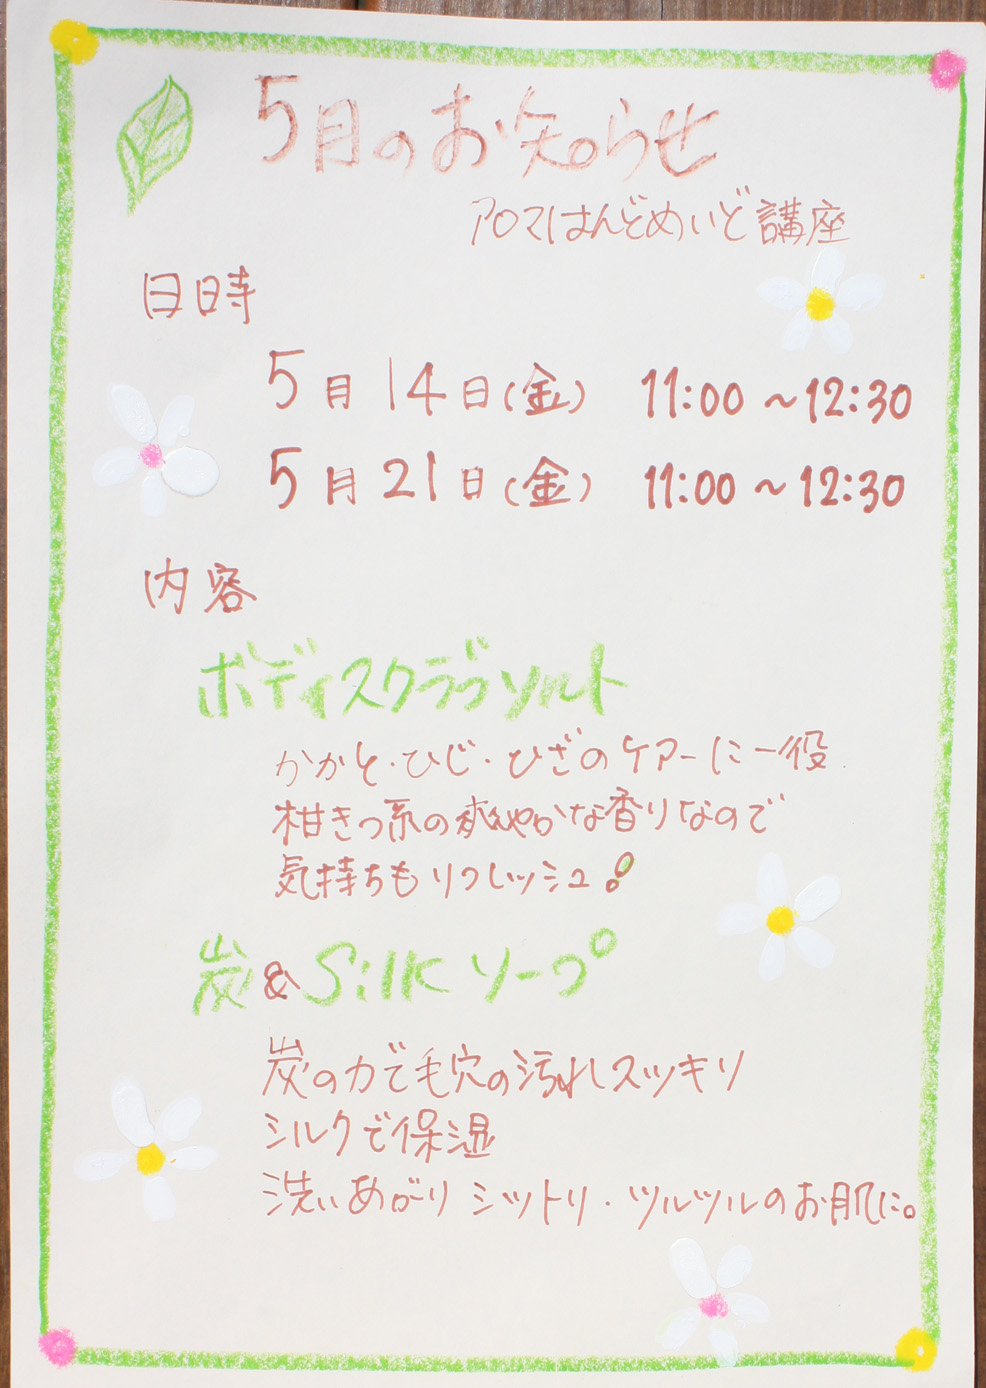 5月のお知らせ
アロマはんどめいど講座
日時
5月14日(金) 11:00~12:30
5月21日(金) 11:00~12:30
内容
ボディスクラブソルト
かかと・ひじ・ひざのケアーに一役
柑きつ系の爽やかな香りなので
気持ちもリフレッシュ!
炭&Silkソープ
炭の力で毛穴の汚れスッキリ
シルクで保湿
洗いあがりシットリ・ツルツルのお肌に。